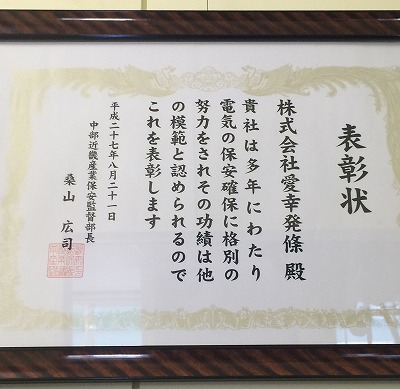 表彰状
株式会社愛幸発條 殿
貴社は多年にわたり
電気の保安確保に格別の
努力をされその功績は他
の模範と認められるので
これを表彰します
平成二十七年八月二十一日
中部近畿産業保安監督部長
桑山 広司